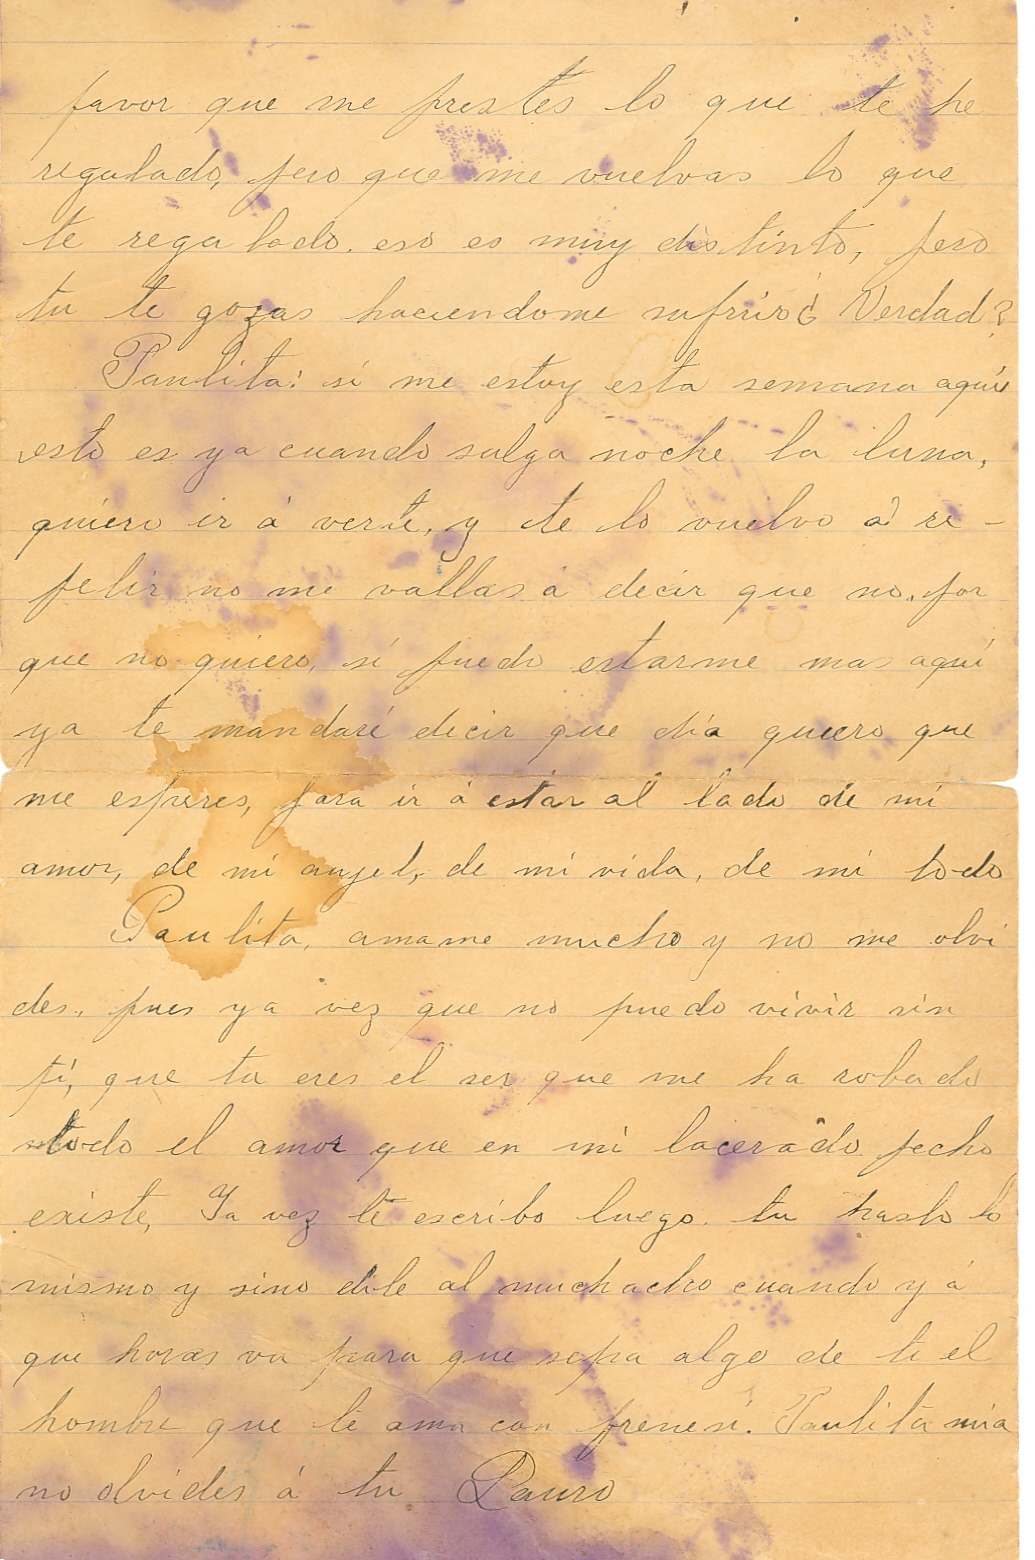 favor que me prestes lo que te he
regalado, pero que me vuelvas lo que
te regalado. eso es muy distinto, pero
tu te gozas haciendome sufrir ¿Verdad?
Paulita: si me estoy esta semana aquí
esto es ya cuando salga noche la luna,
quiero ir á verte, y te lo vuelvo á re-
petir no me vallas á decir que no, por
que no quiero, si puedo estarme mas aquí
ya te mandaré decir que día quiero que
me esperes, para ir á estar al lado de mi
amor, de mi angel, de mi vida, de mi todo
Paulita, amame mucho y no me olvi
des., pues ya vez que no puedo vivir sin
tí, que tu eres el ser que me ha robado
todo el amor que en mi lacerado pecho
existe, Ya vez te escribo luego. tu haslo lo
mismo y sino dile al muchacho cuando y á
que horas va para que sepa algo de ti el
hombre que te ama con frenesí. Paulita mia
no olvides á tu Lauro